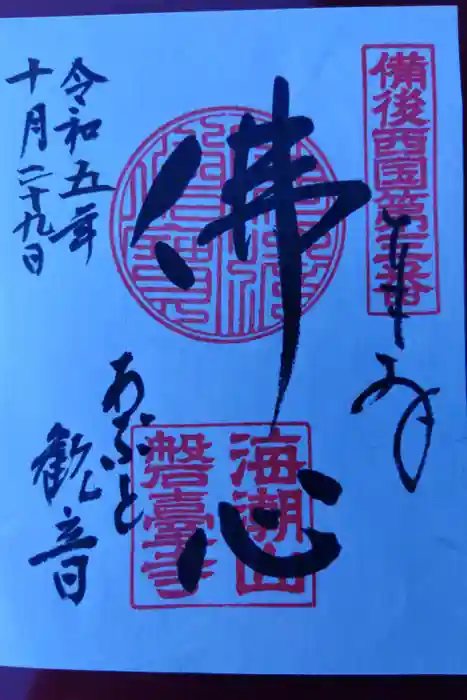 備後西国第三番
奉拝
佛心
海潮山
磐臺寺
あぶと
観音
令和五年
十月二十九日